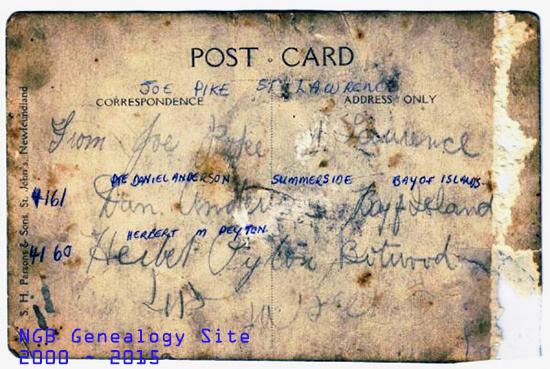 POST CARD
JOE PIKE ST. LAWRENCE
CORRESPONDENCE ADDRESS ONLY
From Joe St Lawrence
PTE DANIEL ANDERSON SUMMERSIDE BAY OF ISLANDS
4161 Dan Ander Bay of Island
HERBERT M PEYTON
4160 Herbet Pyton Botwood
S. H. Parsons & Sons, St. John's, Newfoundland
NGB Genealogy Site
2000 ~ 2015